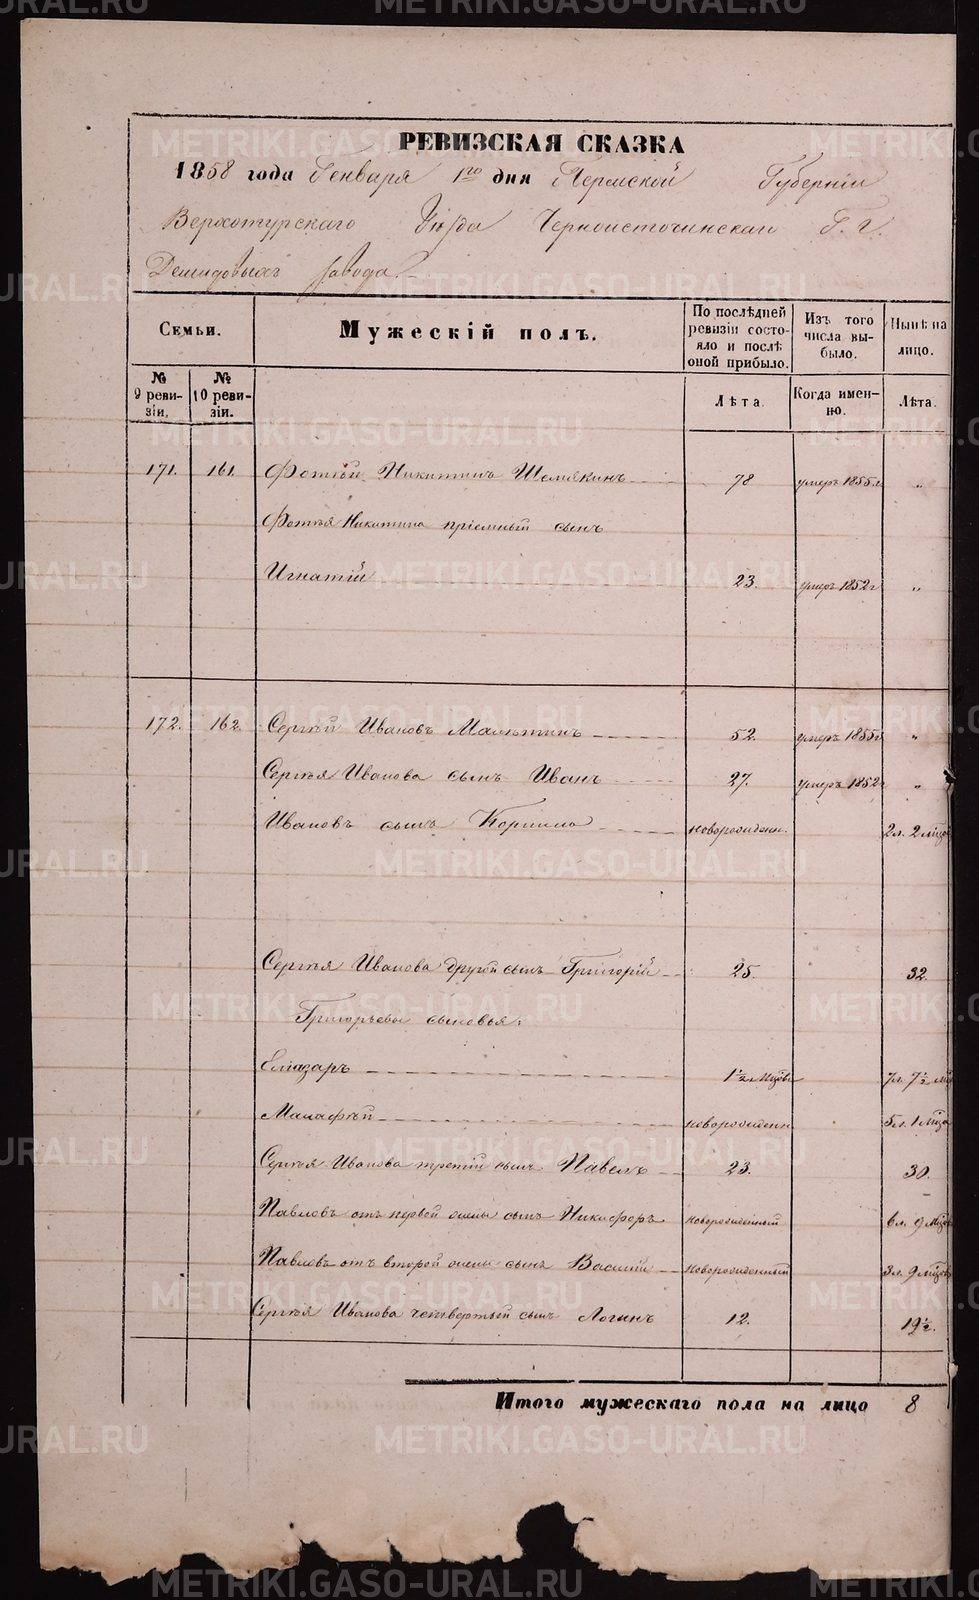 РЕВИЗСКАЯ СКАЗКА
1858 года Генваря 1го дня Пермской Губерніи
Верхотурскаго Уѣзда Черноисточинскаго Г.г.
Демидовыхъ завода
Семьи.
Мужескій полъ.
По послѣдней ревизіи состояло и послѣ оной прибыло.
Изъ того числа выбыло.
Нынѣ на лицо.
№ 9 ревизіи.
№ 10 ревизіи.
Лѣта.
Когда именно.
Лѣта.
171. 161. Фотѣй Никитинъ Шемякинъ 78 умеръ 1855 г „
Фотѣя Никитина пріемный сынъ
Игнатій 23. умеръ 1852 г „
172. 162. Сергѣй Ивановъ 52. умеръ 1855 г „
Сергѣя Иванова сынъ Иванъ 27. умеръ 1852 г „
Ивановъ сынъ Корнило новорожден. 2 л. 2 мѣсяц
Сергѣя Иванова другой сынъ Григорій 25. 32.
Григорьевы сыновья:
Еліазаръ 1½ мѣсяц 7 л. 7½ мѣ
Малафѣй новорожден 5 л. 1 мѣсяц
Сергѣя Иванова третій сынъ Павелъ 23. 30.
Павловъ отъ первой жены сынъ Никифоръ новорожденный 6 л. 9 мѣсяц
Павловъ отъ второй жены сынъ Василій новорожденный 3 л. 9 мѣсяц
Сергѣя Иванова четвертый сынъ Логинъ 12. 19½.
Итого мужескаго пола на лицо 8
METRIKI.GASO-URAL.RU